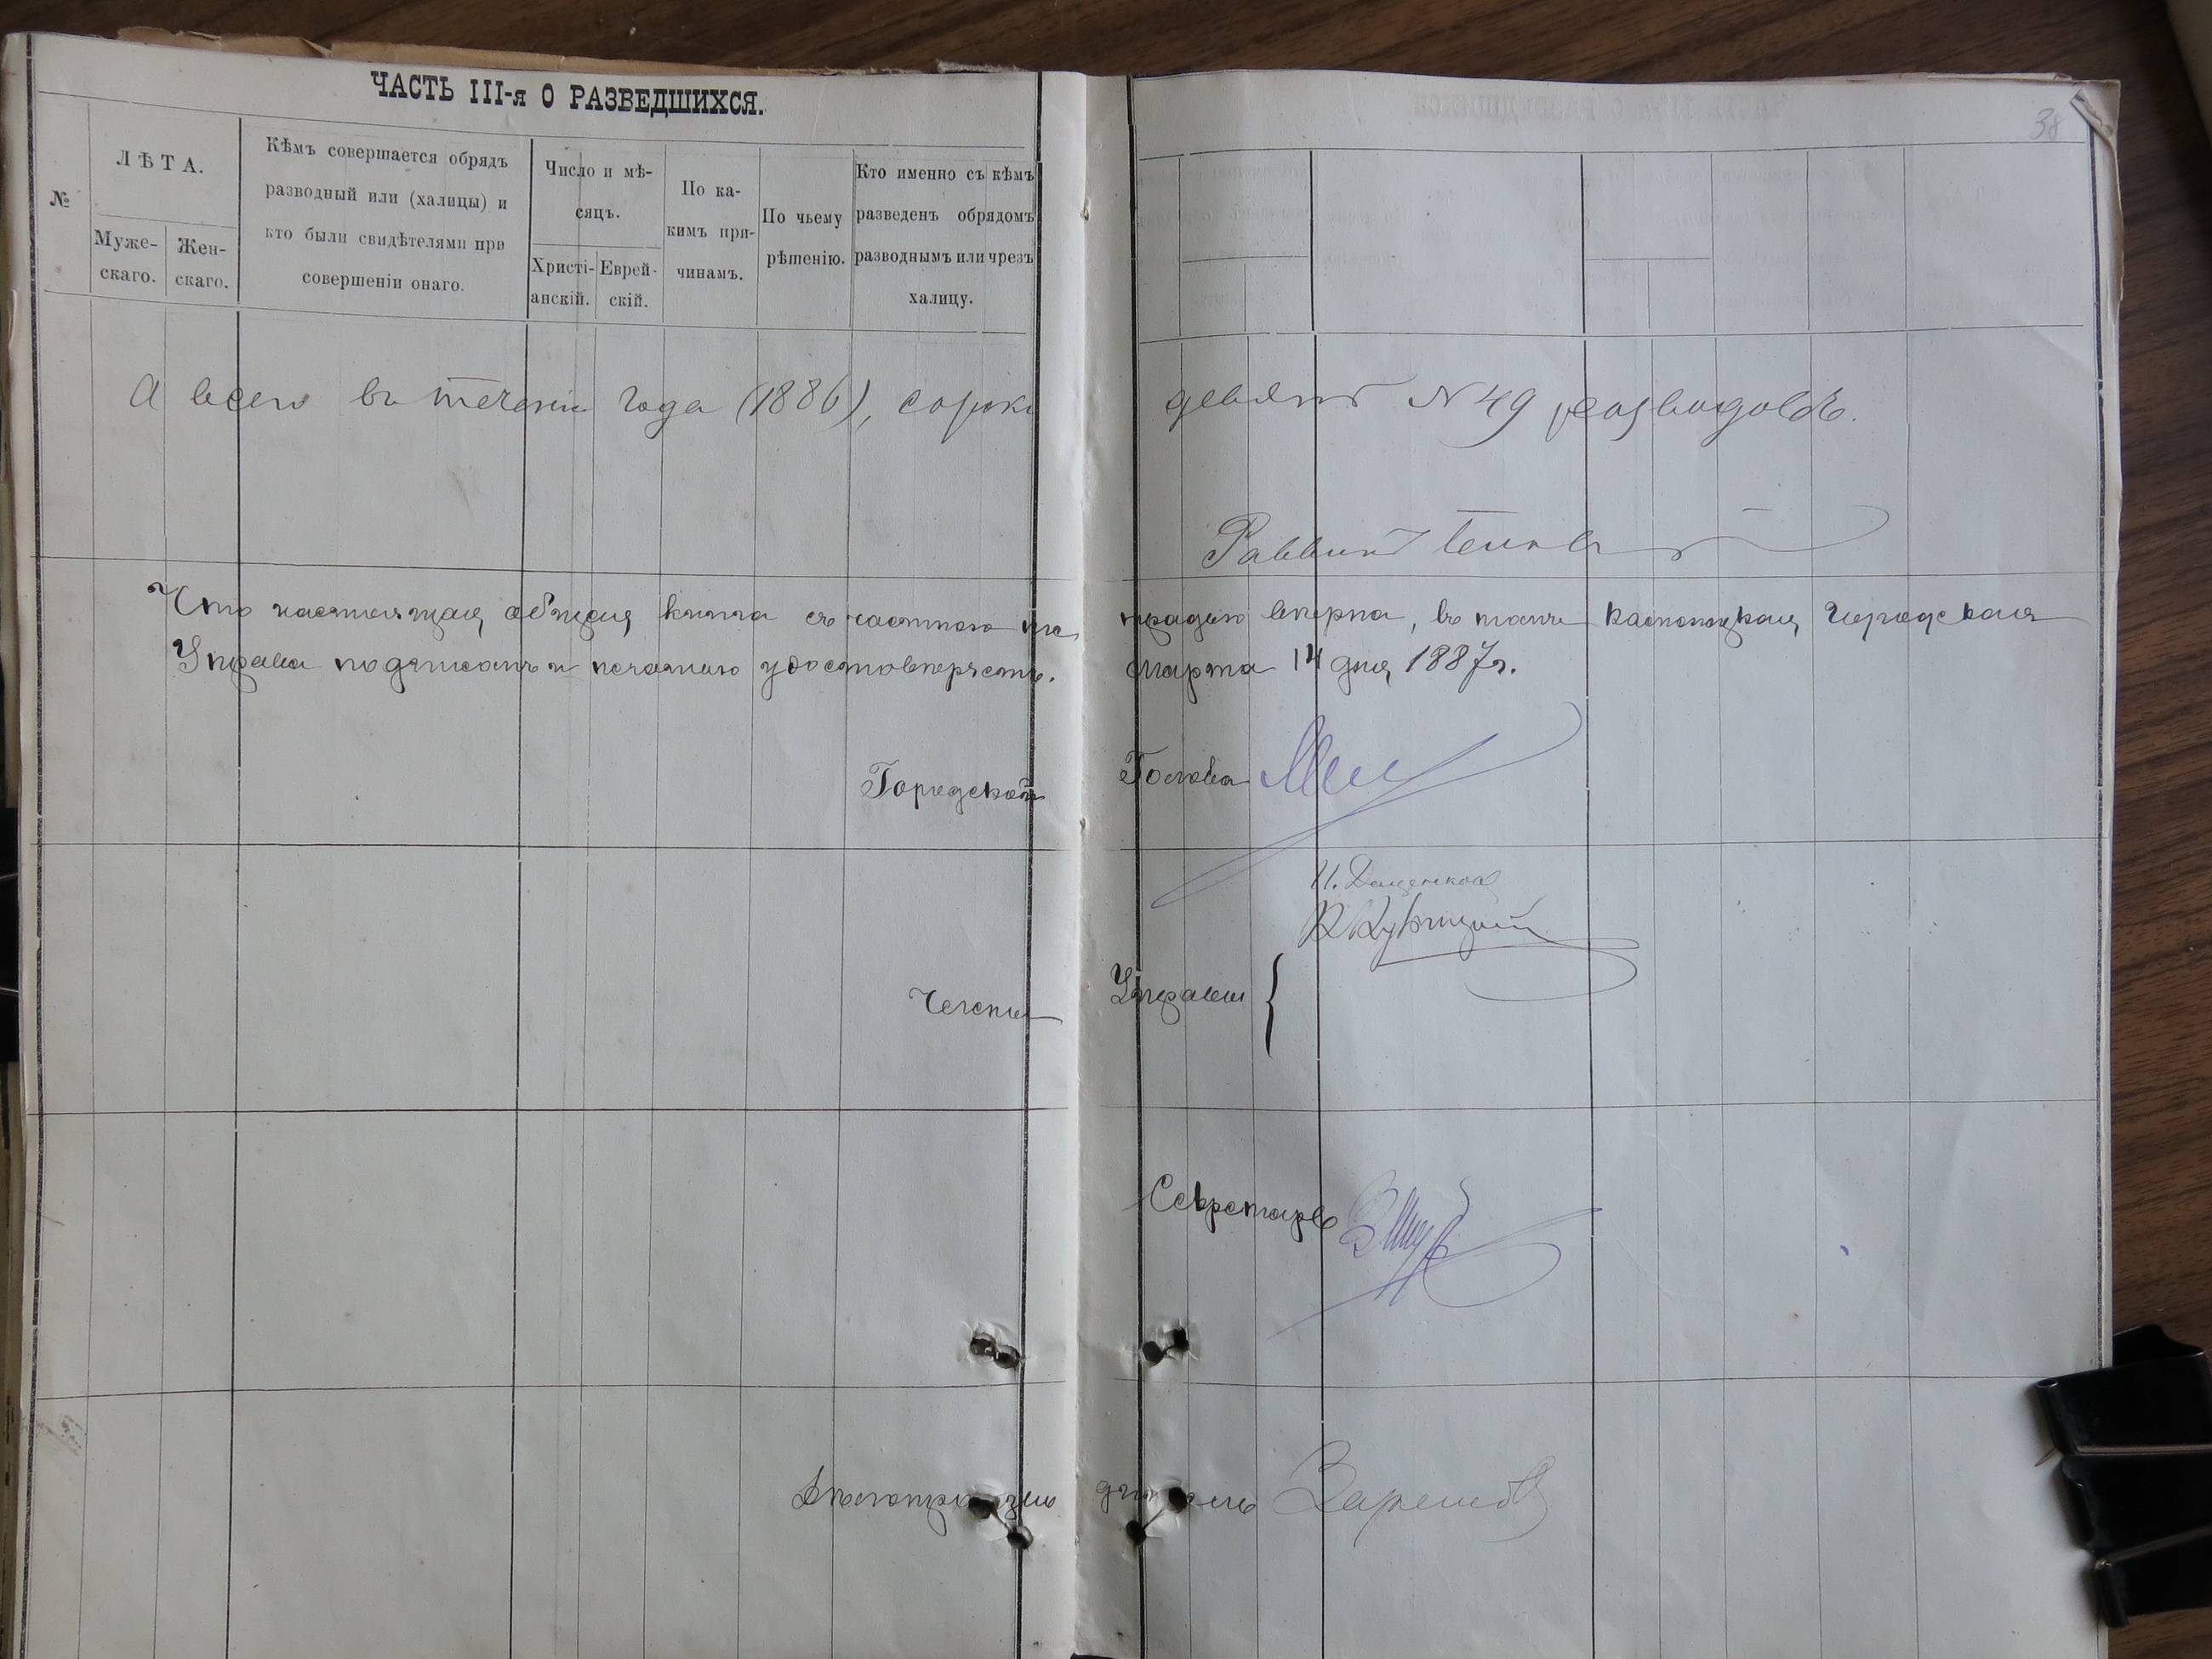 ЧАСТЬ III-я О РАЗВЕДШИХСЯ.
38
№
ЛѢТА.
Муже-
скаго.
Жен-
скаго.
Кѣмъ совершается обрядъ
разводный или (халицы) и
кто были свидѣтелями при
совершеніи онаго.
Число и мѣ-
сяцъ.
Христі-
анскій.
Еврей-
скій.
По ка-
кимъ при-
чинамъ.
По чьему
рѣшенію.
Кто именно съ кѣмъ
разведенъ обрядомъ
разводнымъ или чрезъ
халицу.
А всего въ теченіи года (1886), сорокъ девять № 49 разводовъ.
Раввинъ
Что настоящая общая книга съ частною тетрадью вѣрна, въ томъ Городская
Управа подписомъ и печатью удостовѣряетъ. Марта 14 дня 1887 г.
Городской Голова
И. Даценковъ
Члены Управы {
Секретарь